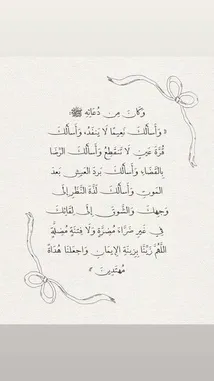 وَكَانَ مِن دُعَائِهِ ﷺ
« وَأَسأَلُكَ نَعِيمًا لَا يَنفَدُ، وَأَسأَلُكَ
قُرَّةَ عَينٍ لَا تَنقَطِعُ وَأَسأَلُكَ الرِّضَا
بِالقَضَاءِ، وَأَسأَلُكَ بَردَ العَيشِ بَعدَ
المَوتِ وَأَسأَلُكَ لَذَّةَ النَّظَرِ إِلَىٰ
وَجهِكَ وَالشَّوقَ إِلَىٰ لِقَائِكَ
فِي غَيرِ ضَرَّاءَ مُضِرَّةٍ وَلَا فِتنَةٍ مُضِلَّةٍ
اللَّهُمَّ زَيِّنَّا بِزِينَةِ الإِيمَانِ وَاجعَلنَا هُدَاةً
مُهتَدِينَ »